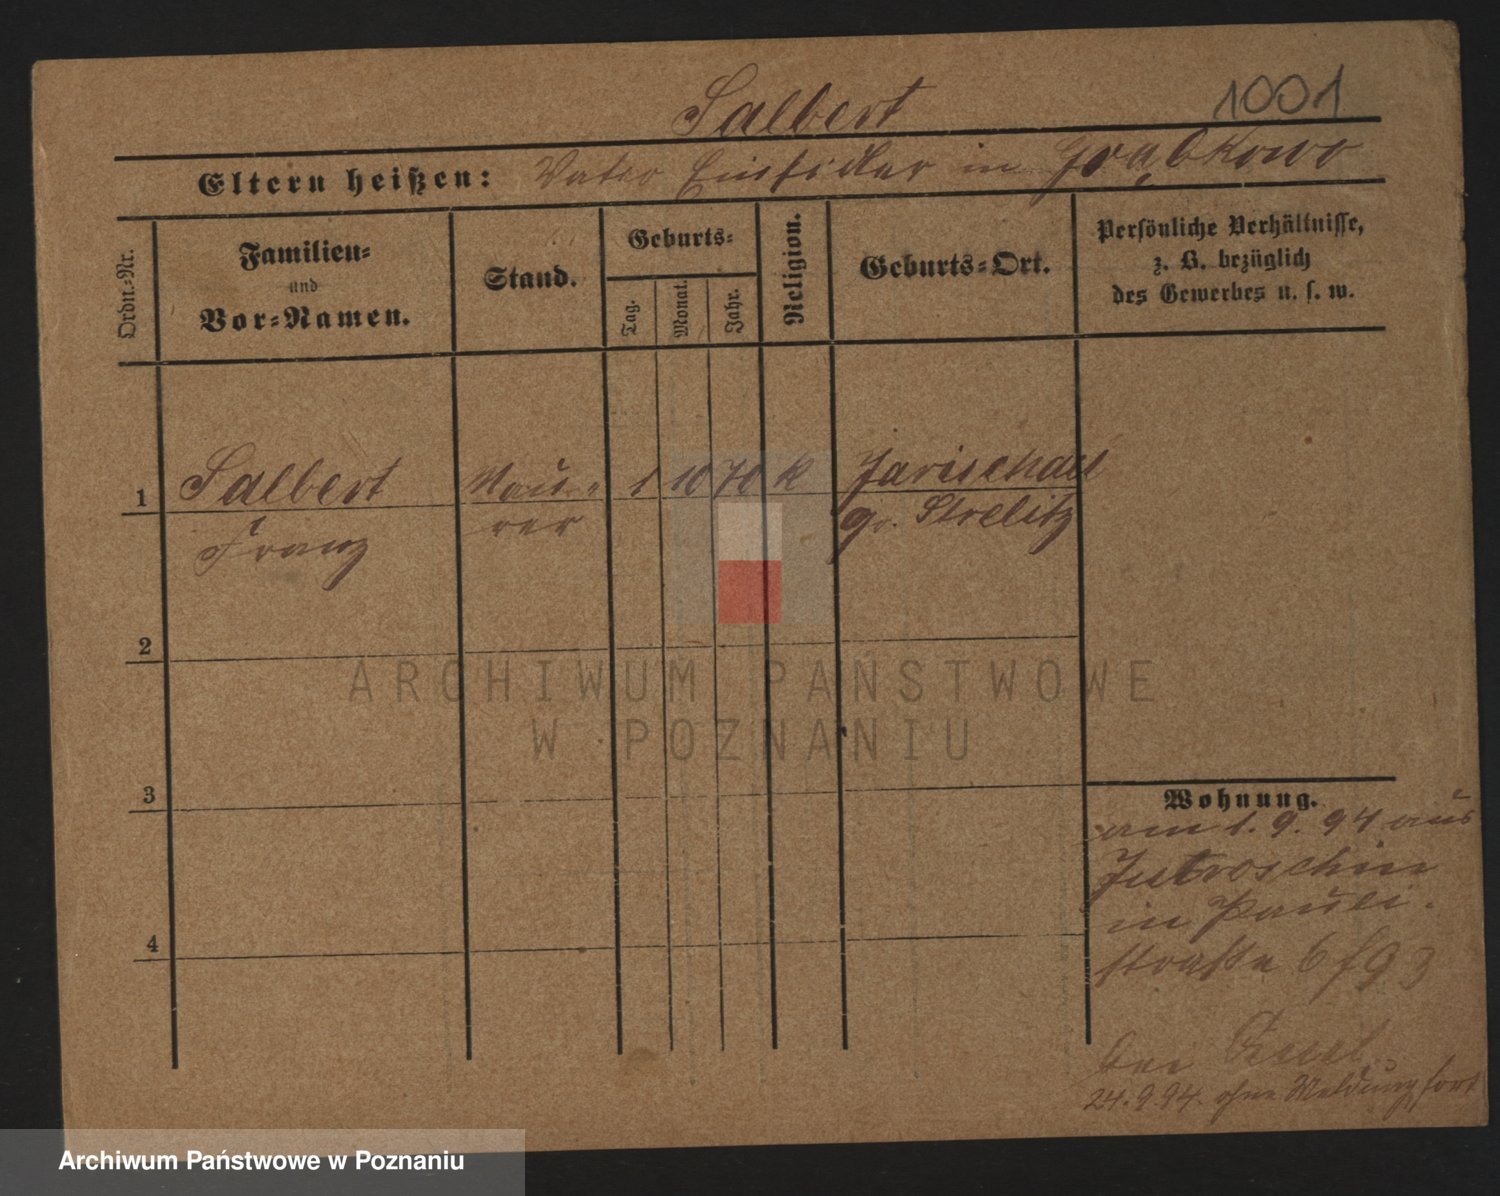 Salbert
1001
Eltern heißen: Vater Einsidler in Grąbkowo
Ordn.-Nr.
Familien-
und
Vor-Namen.
Stand.
Geburts-
Tag.
Monat.
Jahr.
Religion.
Geburts-Ort.
Persönliche Verhältnisse,
z. B. bezüglich
des Gewerbes u. s. w.
1 Salbert Mau- 1 10 70 K Jarischau
Franz rer gr. Strelitz
2
3
4
Wohnung.
am 1. 9. 94 aus
Jutroschin
in Pauli-
straße 6
bei
24.9.94. ohne Meldung fort
ARCHIWUM PAŃSTWOWE
W POZNANIU
Archiwum Państwowe w Poznaniu